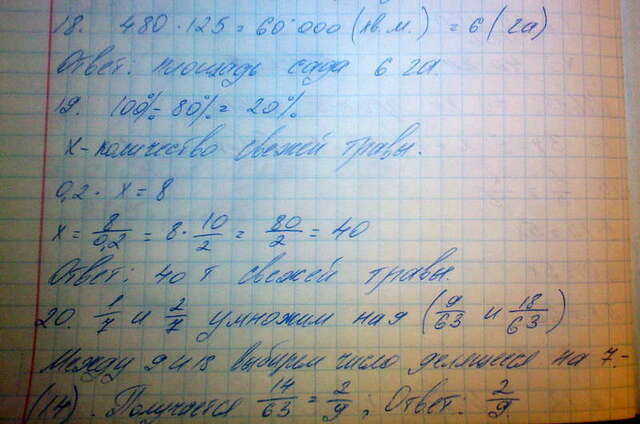 18. 480 · 125 = 60 000 (кв.м.) = 6 (га)
Ответ: площадь сада 6 га.
19. 100% - 80% = 20%
x - количество свежей травы.
0,2 · x = 8
x = 8/0,2 = 8 · 10/2 = 80/2 = 40
Ответ: 40 т свежей травы.
20. 1/7 и 2/7 умножим на 9 (9/63 и 18/63)
Между 9 и 18 выбирем число делящееся на 7 -
(14). Получается 14/63 = 2/9; Ответ: 2/9.